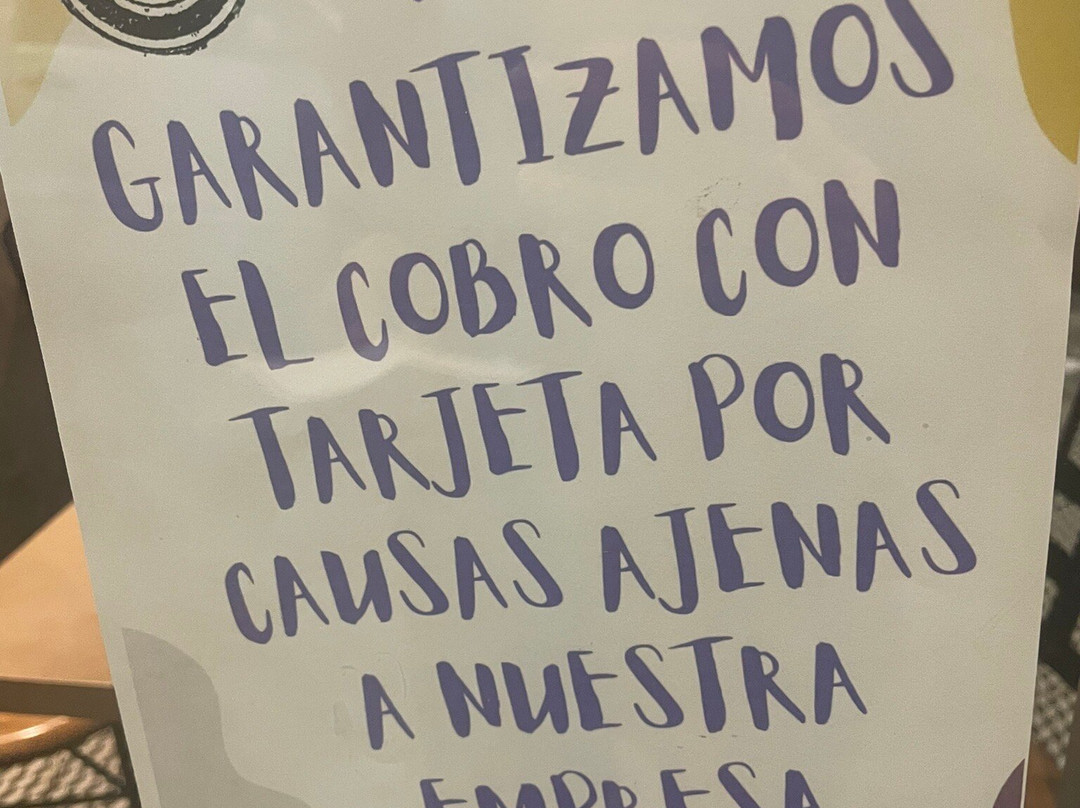 GARANTIZAMOS
EL COBRO CON
TARJETA POR
CAUSAS AJENAS
A NUESTRA
EMPRESA